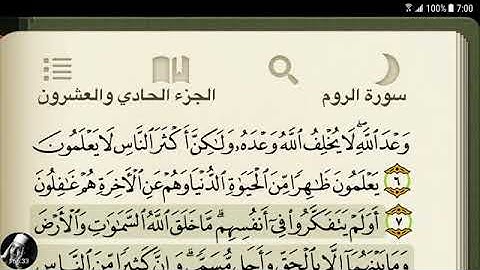 100% 7:00
سورة الروم
الجزء الحادي والعشرون
وَعْدَ ٱللَّهِ ۖ لَا يُخْلِفُ ٱللَّهُ وَعْدَهُۥ وَلَـٰكِنَّ أَكْثَرَ ٱلنَّاسِ لَا يَعْلَمُونَ
٦ يَعْلَمُونَ ظَـٰهِرًا مِّنَ ٱلْحَيَوٰةِ ٱلدُّنْيَا وَهُمْ عَنِ ٱلْـَٔاخِرَةِ هُمْ غَـٰفِلُونَ
٧ أَوَلَمْ يَتَفَكَّرُوا۟ فِىٓ أَنفُسِهِم ۗ مَّا خَلَقَ ٱللَّهُ ٱلسَّمَـٰوَٰتِ وَٱلْأَرْضَ
وَمَا بَيْنَهُمَآ إِلَّا بِٱلْحَقِّ وَأَجَلٍ مُّسَمًّى ۗ وَإِنَّ كَثِيرًا مِّنَ ٱلنَّاسِ